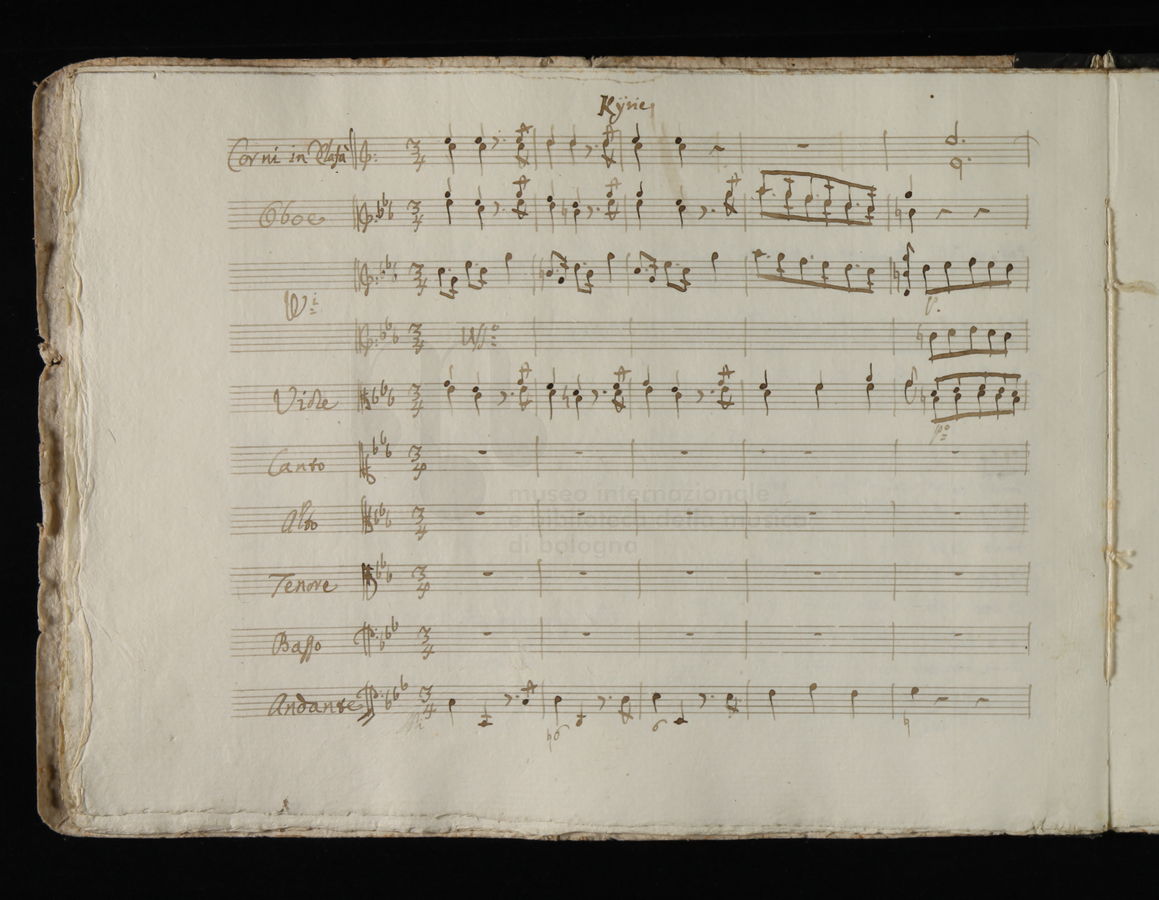 Kyrie
Corni in Elafà
Oboe
3
4
VV.i
Viole
Canto
Alto
Tenore
Basso
Andante
p.
p.o
museo internazionale
e biblioteca della musica
di bologna